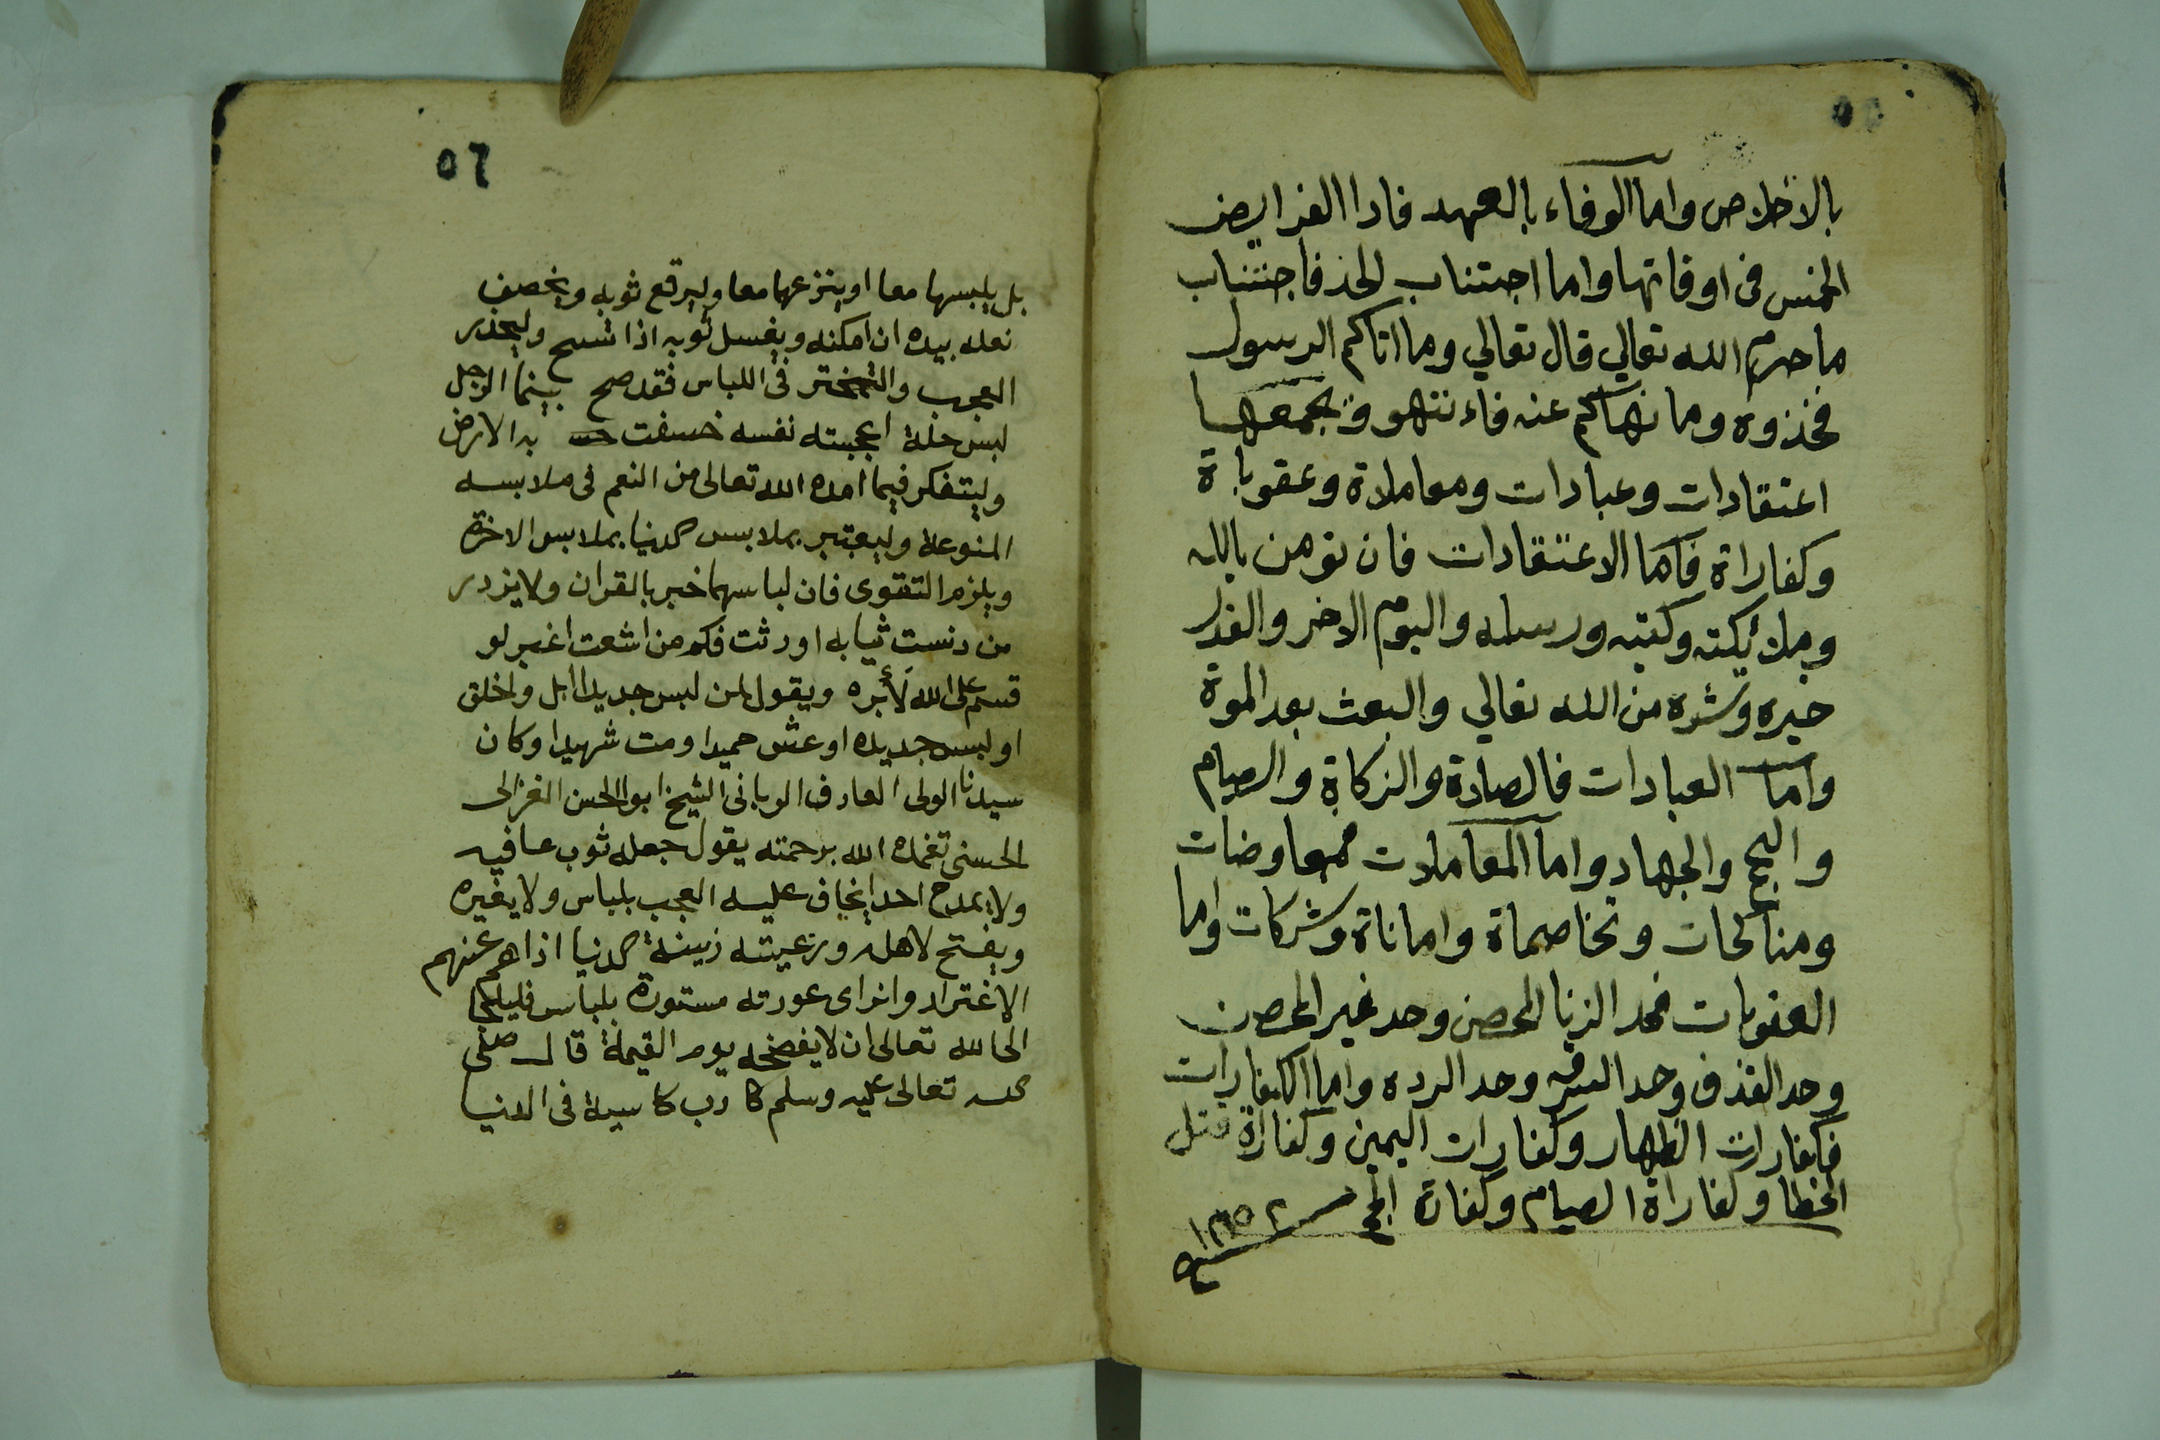 بالاخلاص واما الوفاء بالعهد فادا الفرايض
الخمس فى اوقاتها واما اجتناب الحد فاجتناب
ما حرم الله تعالي قال تعالي وما اتاكم الرسول
فخذوه وما نهاكم عنه فاءنتهو ويجمعها
اعتقادات وعبادات ومعاملاة وعقوباة
وكفاراة فاما الاعتقادات فان تومن بالله
وملائكته وكتبه ورسله واليوم الاخر والقدر
خيره وشره من الله تعالي والبعث بعد الموة
واما العبادات فالصلاة والزكاة والصيام
والحج والجهاد واما المعاملات فمعاوضات
ومناكحات ومخاصماة واماناة وشركات واما
العقوبات فحد الزنا المحصن وحد غير المحصن
وحد القذف وحد السرقه وحد الرده واما الكفارات
فكفارات الظهار وكفارات اليمين وكفاراة قتل
الخطا وكفاراة الصيام وكفارة الحج
١٢٥٢
٥٦
بل يلبسها معا او ينزعهما معا وليرقع ثوبه ويخصف
نعله بيده ان امكنه ويغسل ثوبه اذا تسخ وليحذر
العجب والتبختر فى اللباس فقد صح بينما الرجل
لبس حلة اعجبته نفسه خسفت به الارض
وليتفكر فيما امده الله تعالى من النعم فى ملابسه
المنوعة وليعتبر بملابس الدنيا بملابس الاخرة
ويلزم التقوى فان لباسهما خير بالقران ولا يزدر
من دنست ثيابه او رثت فكم من اشعت اغبر لو
قسم على الله لأبره ويقول لمن لبس جديدا ابل واخلق
او لبس جديده او عش حميدا ومت شهيدا وكان
سيدنا الولى العارف الربانى الشيخ ابو الحسن الغزالى
الحسنى تغمده الله برحمته يقول جعله ثوب عافيه
ولا يمدح احدا يخاف عليه العجب بلباس ولا بغيره
ويفتح لاهله ورعيته زينة الدنيا اذا هم عنهم
الاغترار وان راى عورته مستورة بلباس فليلجا
الى الله تعالى ان لا يفضحه يوم القيمة قال صلى
الله تعالى عليه وسلم كا رب كاسية فى الدنيا